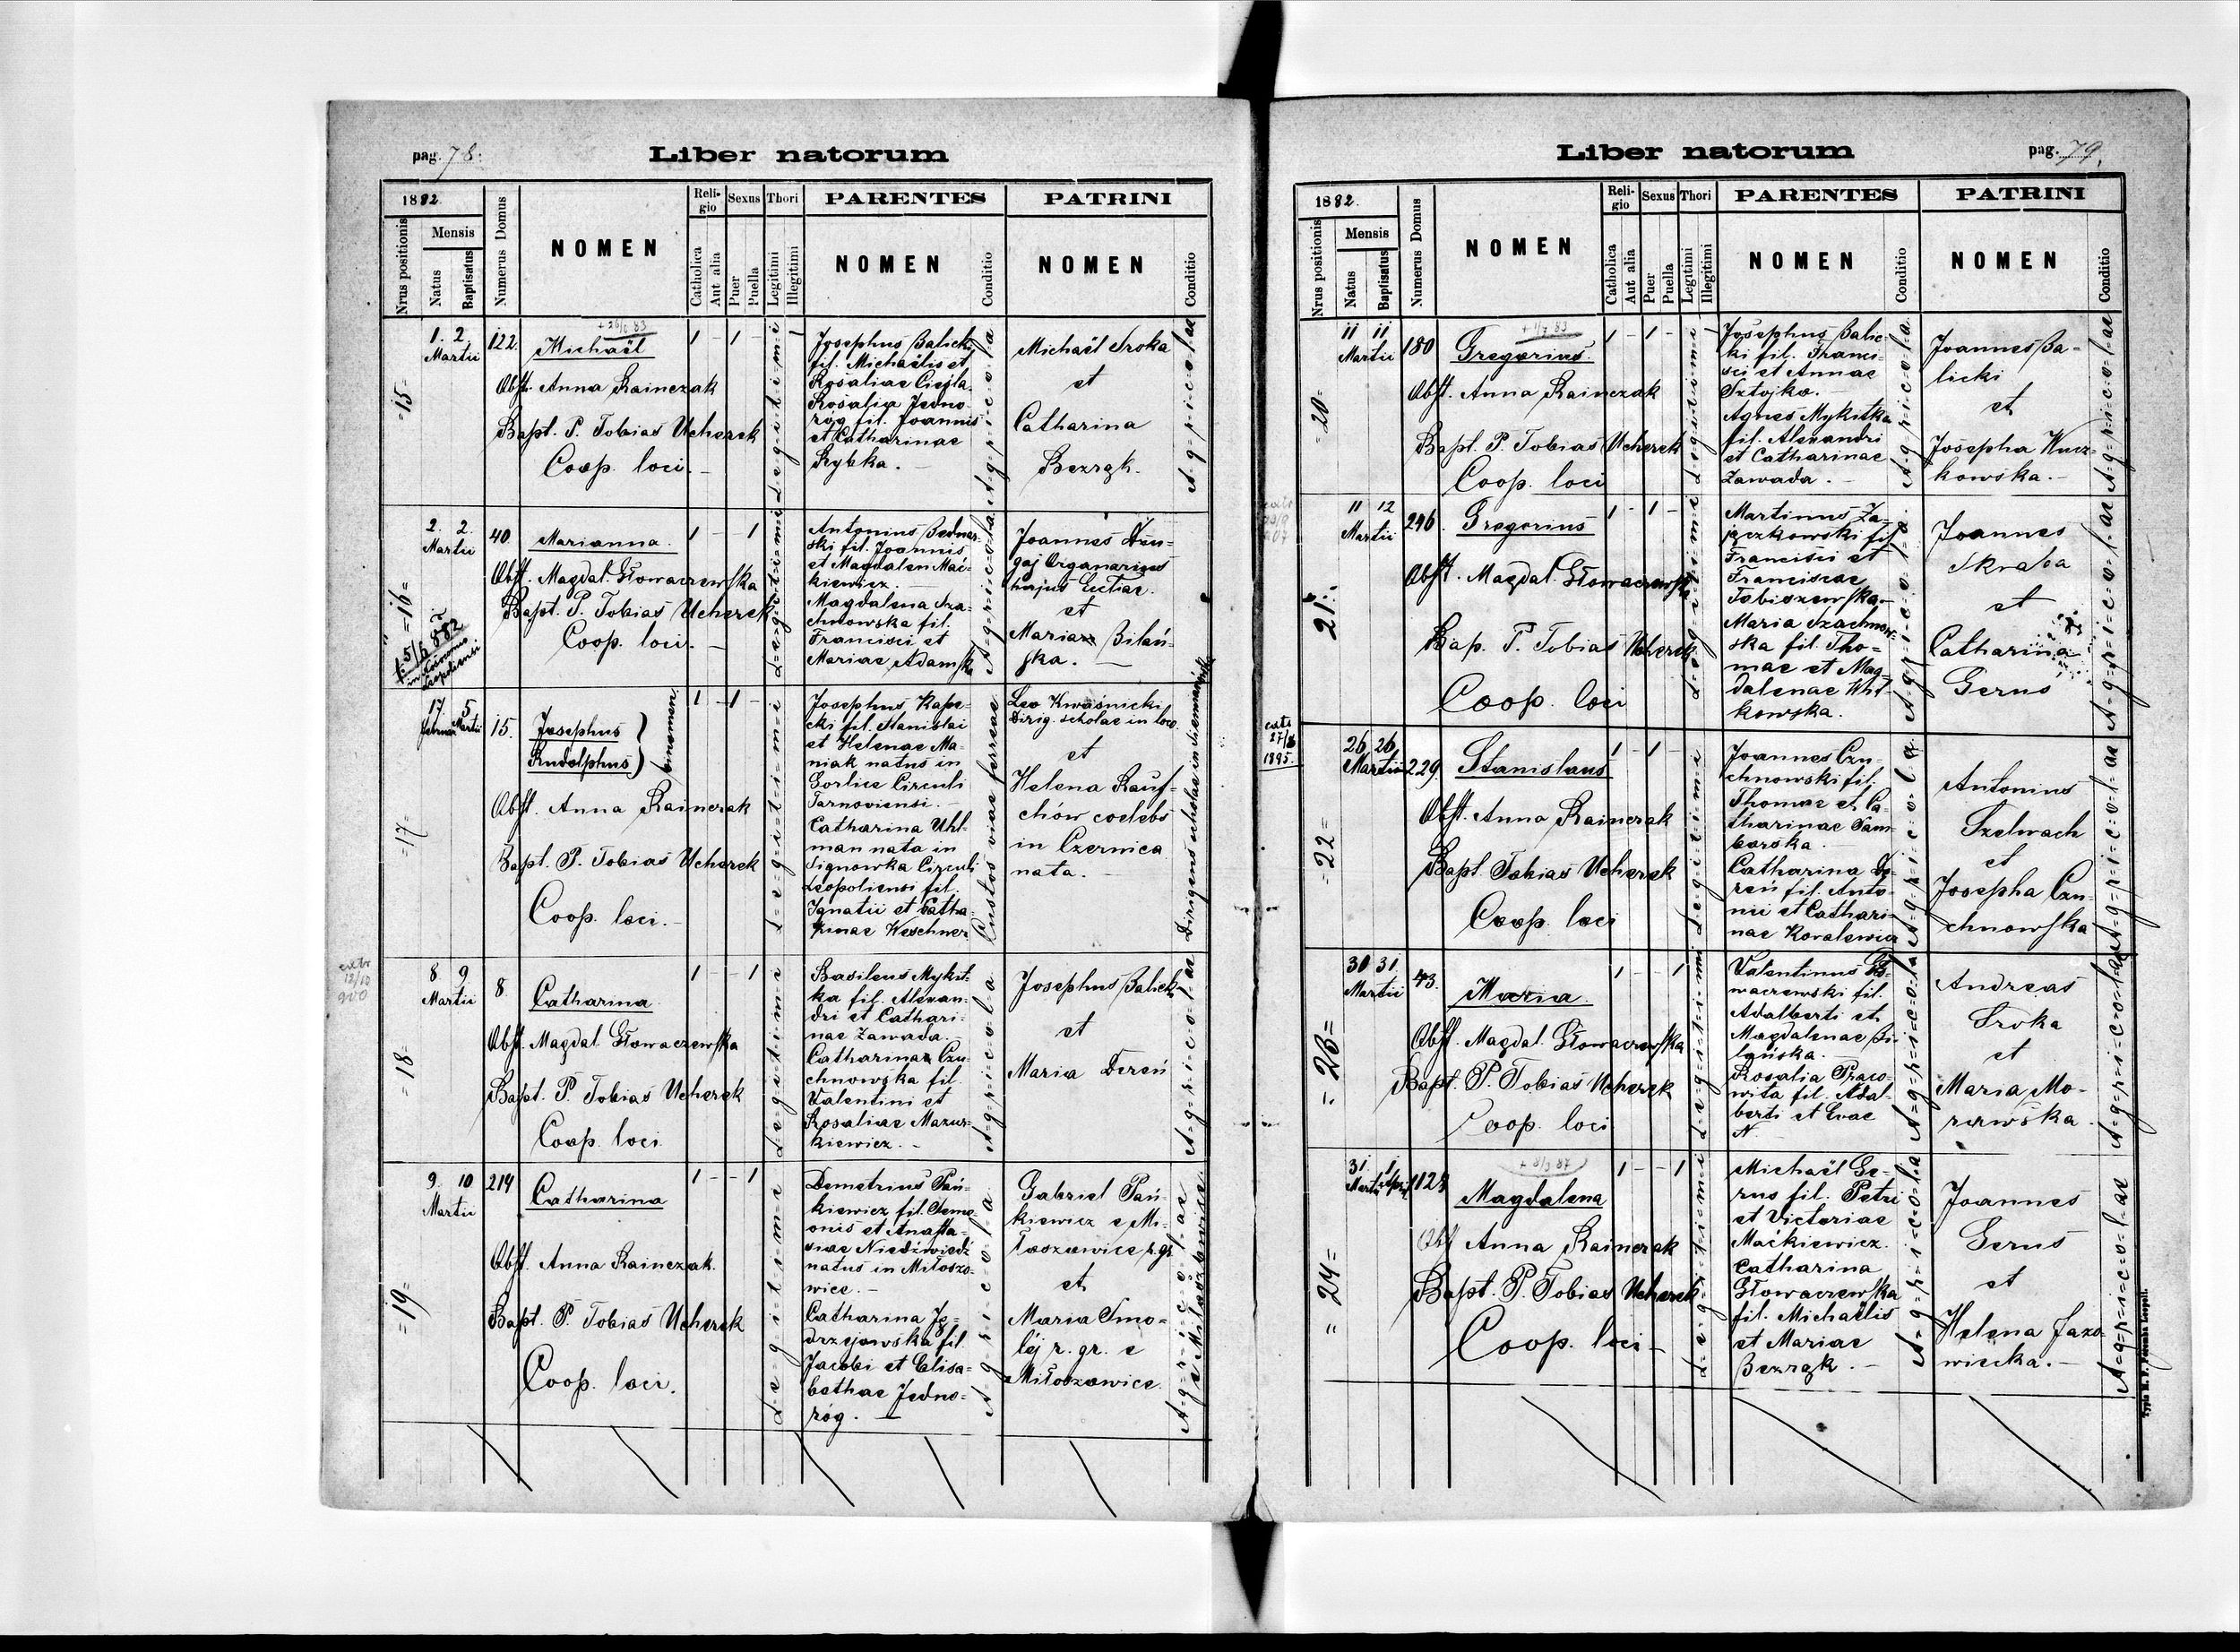 pag. 78.
Liber natorum
1882
Nrus positionis
Mensis
Natus
Baptisatus
Numerus Domus
NOMEN
Religio
Catholica
Aut alia
Sexus
Puer
Puella
Thori
Legitimi
Illegitimi
PARENTES
NOMEN
Conditio
PATRINI
NOMEN
Conditio
=15=
1. 2.
Martii
122.
+ 26/6 83
Michaël
Obst. Anna Rainczak
Bapt. P. Tobias Ucherek
Coop. loci.
1 - 1 -
L=e=g=i=t=i=m=i
Josephus Balicki
fil. Michaëlis et
Rosaliae Ciejla.
Rosalia Jedno-
róg fil. Joannis
et Catharinae
Rybka.
A=g=r=i=c=o=l=a
Michaël Sroka
et
Catharina
Bezrąk.
A=g=r=i=c=o=l=ae
=16=
2. 2.
Martii
40.
Marianna.
Obst. Magdal. Głowaczewska
Bapt. P. Tobias Ucherek
Coop. loci.
1 - - 1
L=e=g=i=t=i=m=i
Antonius Bednar-
ski fil. Joannis
et Magdalen Mać-
kiewicz.
Magdalena Sza-
chnowska fil.
Francisci et
Mariae Adamska
A=g=r=i=c=o=l=a
Joannes
Organarius
hujus Eccliae.
et
Maria Bilań-
ska.
=17=
17 5
Februar Martii
15.
Josephus
Rudolphus
binomen
Obst. Anna Rainczak
Bapt. P. Tobias Ucherek
Coop. loci.
1 - 1 -
L=e=g=i=t=i=m=i
Josephus Kape-
cki fil. Stanislai
et Helenae Ma-
niak natus in
Gorlice Circuli
Tarnoviensi.
Catharina Uhl-
man nata in
Signowka Circuli
Leopoliensi fil.
Ignatii et Catha-
rinae Weschner
Custos viae ferreae
Leo Kwaśnicki
Dirig. scholae in loco
et
Helena Rauf-
chów coelebs
in Czernica
nata.
Dirigens scholae in
=18=
8 9
Martii
8.
Catharina
Obst. Magdal. Głowaczewska
Bapt. P. Tobias Ucherek
Coop. loci
1 - - 1
L=e=g=i=t=i=m=i
Basileus Mykit-
ka fil. Alexan-
dri et Cathari-
nae Zawada.
Catharina Czu-
chnowska fil.
Valentini et
Rosaliae Mazur-
kiewicz.
A=g=r=i=c=o=l=a
Josephus Balicki
et
Maria Dereń
A=g=r=i=c=o=l=ae
=19=
9. 10
Martii
214
Catharina
Obst. Anna Rainczak.
Bapt. P. Tobias Ucherek
Coop. loci.
1 - - 1
L=e=g=i=t=i=m=i
Demetrius Pań-
kiewicz fil. Sime-
onis et Anasta-
siae Niedźwiedź
natus in Miłoszo-
wice.
Catharina Ję-
drzejowska fil.
Jacobi et Elisa-
bethae Jedno-
róg.
A=g=r=i=c=o=l=a
Gabriel Pań-
kiewicz e Mi-
łoszowice r. gr.
et
Maria Smo-
lej r. gr. e
Miłoszowice
A=g=r=i=c=o=l=ae
e Miłoszowice
Liber natorum
pag. 79.
1882.
Nrus positionis
Mensis
Natus
Baptisatus
Numerus Domus
NOMEN
Religio
Catholica
Aut alia
Sexus
Puer
Puella
Thori
Legitimi
Illegitimi
PARENTES
NOMEN
Conditio
PATRINI
NOMEN
Conditio
=20=
11 11
Martii
180
Gregorius.
Obst. Anna Rainczak
Bapt. P. Tobias Ucherek
Coop. loci
1 - 1 -
L=e=g=i=t=i=m=i
Josephus Balic-
ki fil. Franci-
sci et Annae
Sztojko.
Agnes Mykitka
fil. Alexandri
et Catharinae
Zawada.
A=g=r=i=c=o=l=a
Joannes Ba-
licki
et
Josepha Wucz-
kowska.
A=g=r=i=c=o=l=ae
21.
11 12
Martii
246.
Gregorius
Obst. Magdal. Głowaczewska
Bap. P. Tobias Ucherek
Coop. loci
1 - 1 -
L=e=g=i=t=i=m=i
Martinus Za-
jączkowski fil
Francisci et
Franciscae
Tobiszewska.
Maria Szachnow-
ska fil. Tho-
mae et Mag-
dalenae Wit-
kowska.
A=g=r=i=c=o=l=a
Joannes
Skraba
et
Catharina
Gerus
A=g=r=i=c=o=l=ae
1895.
=22=
26 26
Martii
229
Stanislaus
Obst. Anna Rainczak
Bapt. Tobias Ucherek
Coop. loci
1 - 1 -
L=e=g=i=t=i=m=i
Joannes Czu-
chnowski fil.
Thomae et Ca-
tharinae Sam-
borska.
Catharina De-
reń fil. Anto-
nii et Cathari-
nae Kovalewicz
A=g=r=i=c=o=l=a
Antonius
Szelwach
et
Josepha Czu-
chnowska
A=g=r=i=c=o=l=ae
=23=
30 31
Martii
43.
Maria
Obst. Magdal. Głowaczewska
Bapt. P. Tobias Ucherek
Coop. loci
1 - - 1
L=e=g=i=t=i=m=i
Valentinus Gło-
waczewski fil.
Adalberti et
Magdalenae Bi-
lańska.
Rosalia Praco-
wita fil. Adal-
berti et Evae
N.
A=g=r=i=c=o=l=a
Andreas
Sroka
et
Maria Mo-
rawska.
A=g=r=i=c=o=l=ae
=24=
31. 1
Martii April
124
+ 8/3 87
Magdalena
Obst Anna Rainczak
Bapt. P. Tobias Ucherek
Coop. loci
1 - - 1
L=e=g=i=t=i=m=i
Michaël Ge-
rus fil. Petri
et Victoriae
Maćkiewicz.
Catharina
Głowaczewska
fil. Michaëlis
et Mariae
Bezrąk.
A=g=r=i=c=o=l=a
Joannes
Gerus
et
Helena Jazo-
wiecka.
A=g=r=i=c=o=l=ae